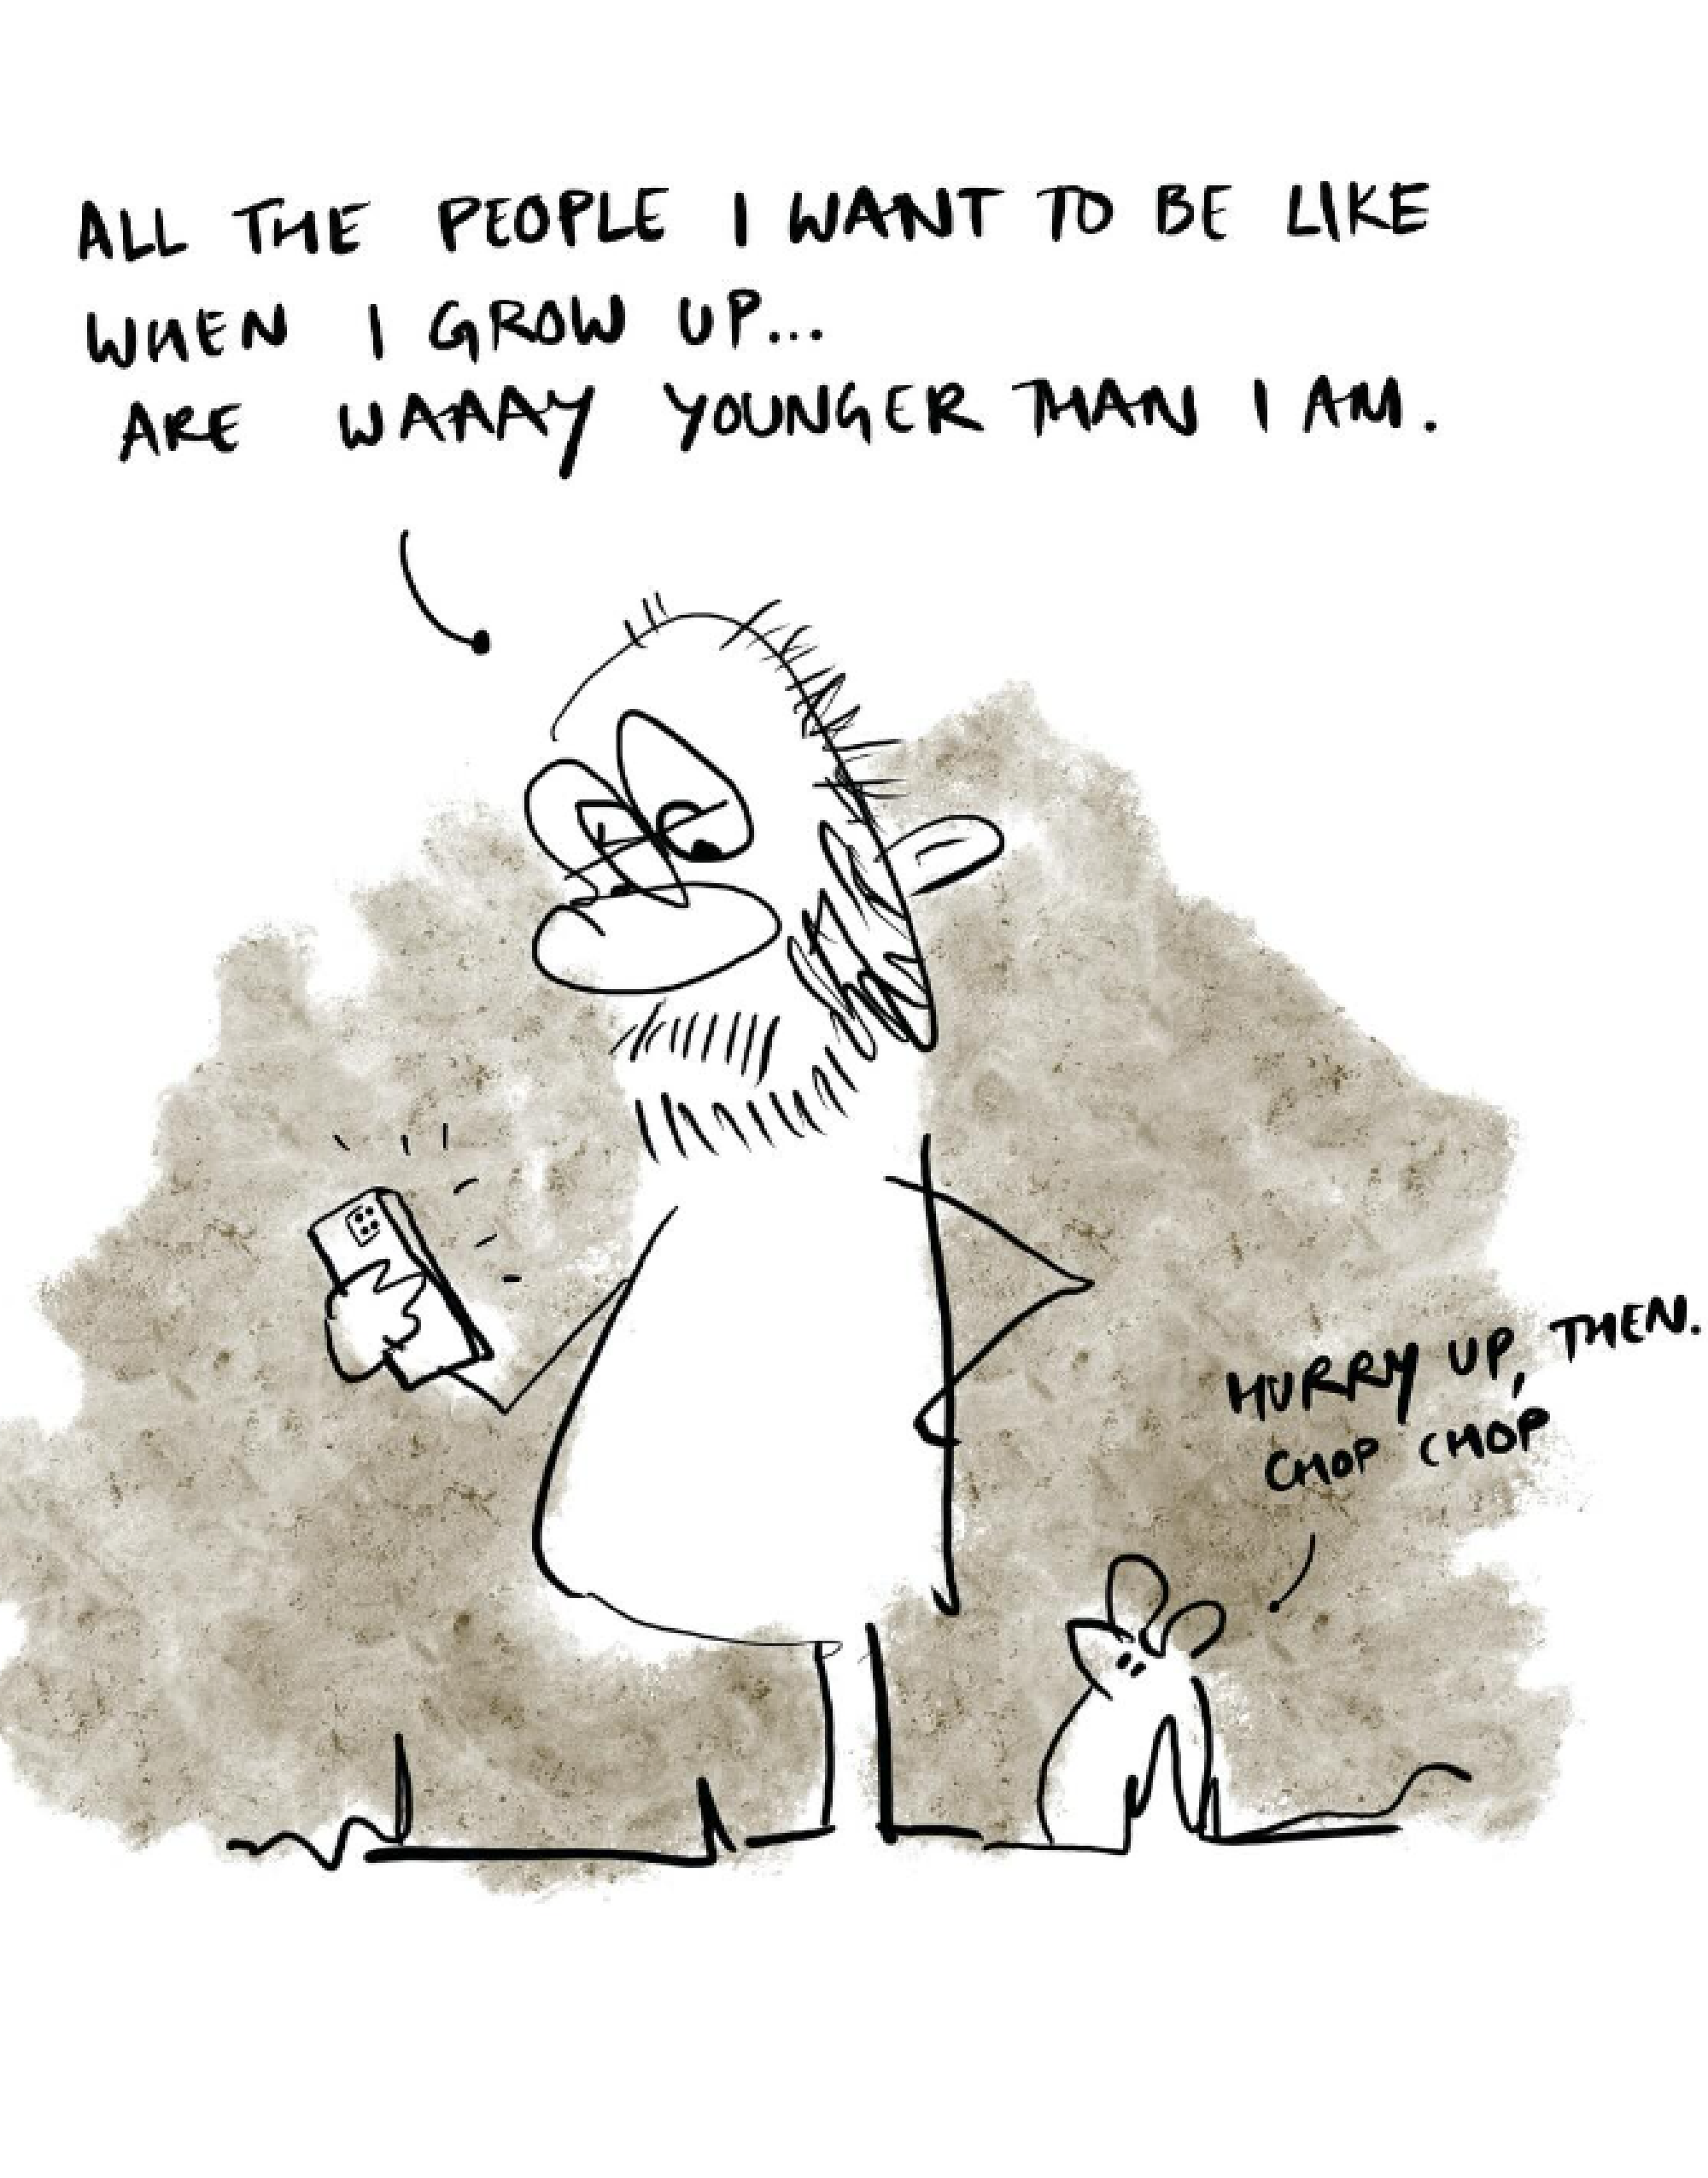 ALL THE PEOPLE I WANT TO BE LIKE
WHEN I GROW UP...
ARE WAAAY YOUNGER THAN I AM.
HURRY UP, THEN.
CHOP CHOP